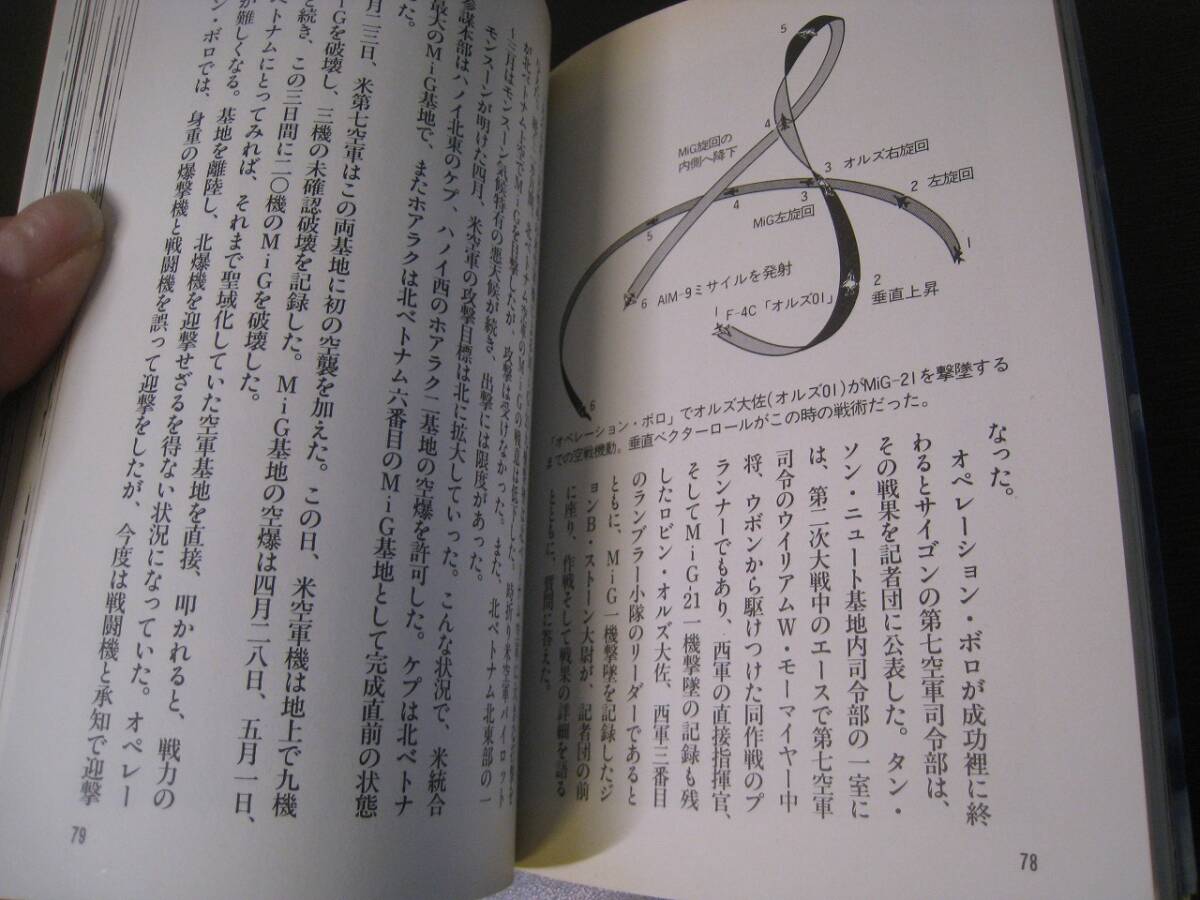 5
4
MiG旋回の
内側へ降下
3 オルズ右旋回
2 左旋回
1
4
3
MiG左旋回
5
6
AIM-9ミサイルを発射
2
垂直上昇
1 F-4C「オルズ01」
6
「オペレーション・ボロ」でオルズ大佐(オルズ01)がMiG-21を撃墜する
までの空戦機動。垂直ベクターロールがこの時の戦術だった。
なった。
オペレーション・ボロが成功裡に終
わるとサイゴンの第七空軍司令部は、
その戦果を記者団に公表した。タン・
ソン・ニュート基地内司令部の一室に
は、第二次大戦中のエースで第七空軍
司令のウイリアムW・モーマイヤー中
将、ウボンから駆けつけた同作戦のプ
ランナーでもあり、西軍の直接指揮官、
そしてMiG-21一機撃墜の記録も残
したロビン・オルズ大佐、西軍三番目
のランブラー小隊のリーダーであると
ともに、MiG一機撃墜を記録したジ
ョンB・ストーン大尉が、記者団の前
に座り、作戦そして戦果の詳細を語る
とともに、質問に答えた。
78
が北ベトナム上空でMiGを目撃したが、攻撃は受けなかった。また、北ベトナム北東部の一
〜三月はモンスーン気候特有の悪天候が続き、出撃には限度があった。
モンスーンが明けた四月、米空軍の攻撃目標は北に拡大していった。こんな状況で、米統合
参謀本部はハノイ北東のケプ、ハノイ西のホアラク二基地の空爆を許可した。ケプは北ベトナ
最大のMiG基地で、またホアラクは北ベトナム六番目のMiG基地として完成直前の状態
った。
月二三日、米第七空軍はこの両基地に初の空襲を加えた。この日、米空軍機は地上で九機
Gを破壊し、三機の未確認破壊を記録した。MiG基地の空爆は四月二八日、五月一日、
と続き、この三日間に二〇機のMiGを破壊した。
ベトナムにとってみれば、それまで聖域化していた空軍基地を直接、叩かれると、戦力の
が難しくなる。基地を離陸し、北爆機を迎撃せざるを得ない状況になっていた。オペレー
ン・ボロでは、身重の爆撃機と戦闘機を誤って迎撃をしたが、今度は戦闘機と承知で迎撃
79